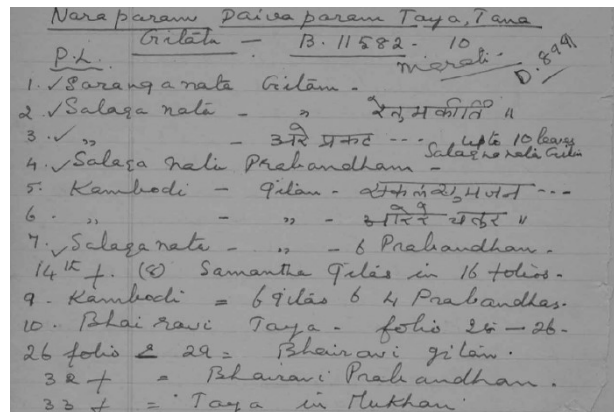 Naraparam Daivaparam Taya, Tana
Gitāta - B. 11582 - 10
P.L. Marati D. 8991
1. ✓ Saranganata Gitām -
2. ✓ Salaga nata - " रेनुमकीर्ति "
3. ✓ " - अरे प्रकट --- upto 10 leaves
4. ✓ Salaga nati Prabandham - Salaga nata Gitān
5. Kambodi - gitān - ---
6. " - " - "
7. ✓ Salaga nata - " - 6 Prabandhan.
14th f. (8) Samantha gitās in 16 folios -
9 - Kambodi = 6 gitās 6 4 Prabandhas.
10. Bhairavi Taya - folio 25 - 26 -
26 folio 29 = Bhairavi gitān.
32 f = Bhairavi Prabandhan.
33 f = Taya in Mukhari